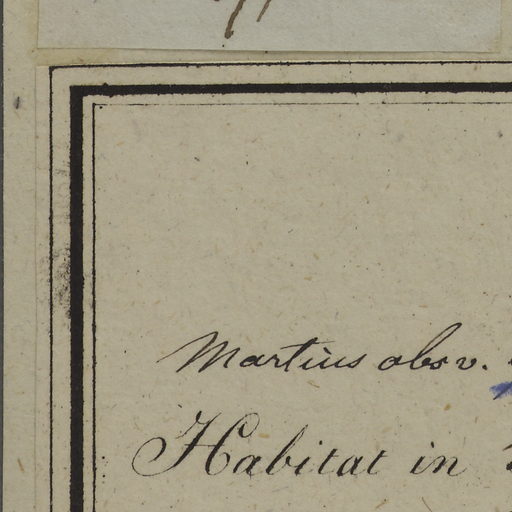 Martius obsv.
Habitat in